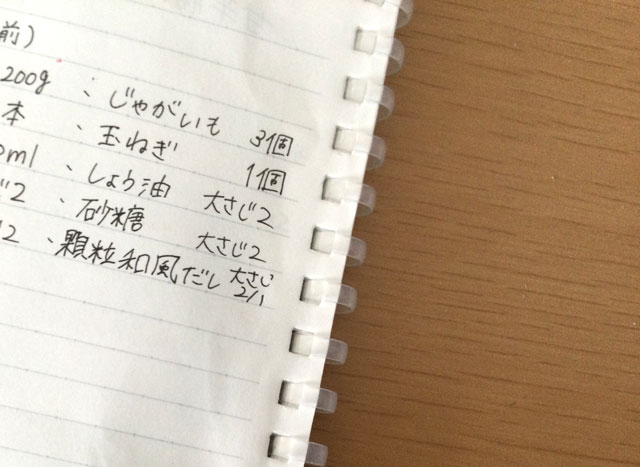 前)
200g 、じゃがいも 3個
本 、玉ねぎ 1個
0ml 、しょう油 大さじ2
じ2 、砂糖 大さじ2
2 、顆粒和風だし 大さじ
2/1